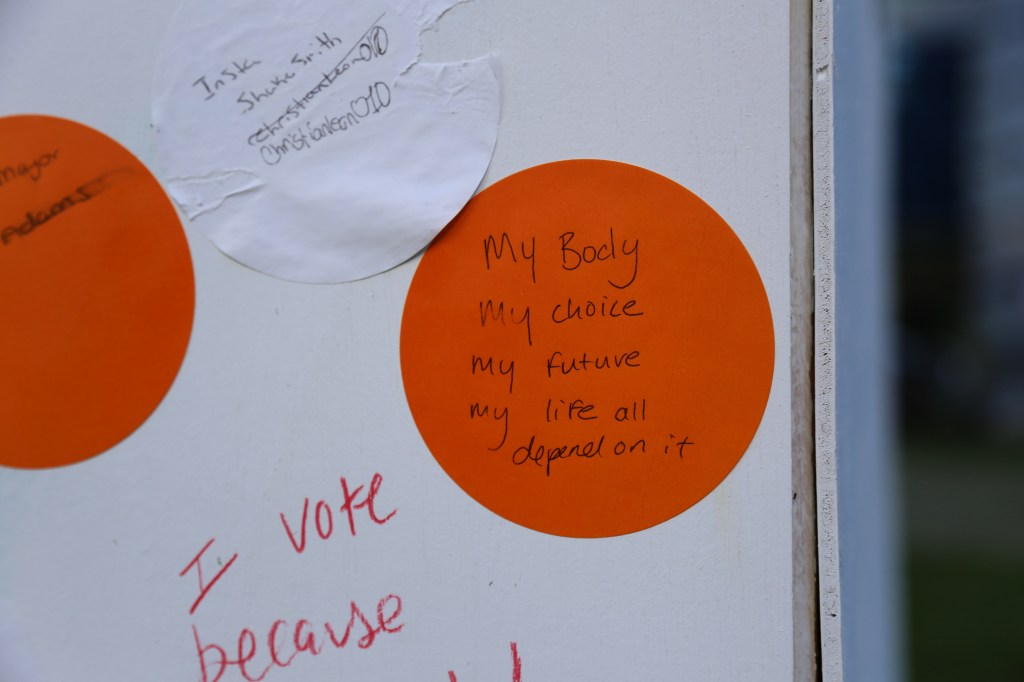 Insta
Shake Smith
christianleon010
christianleon010
mayor
Adams
My Body
My choice
my future
my life all
depend on it
I vote
because